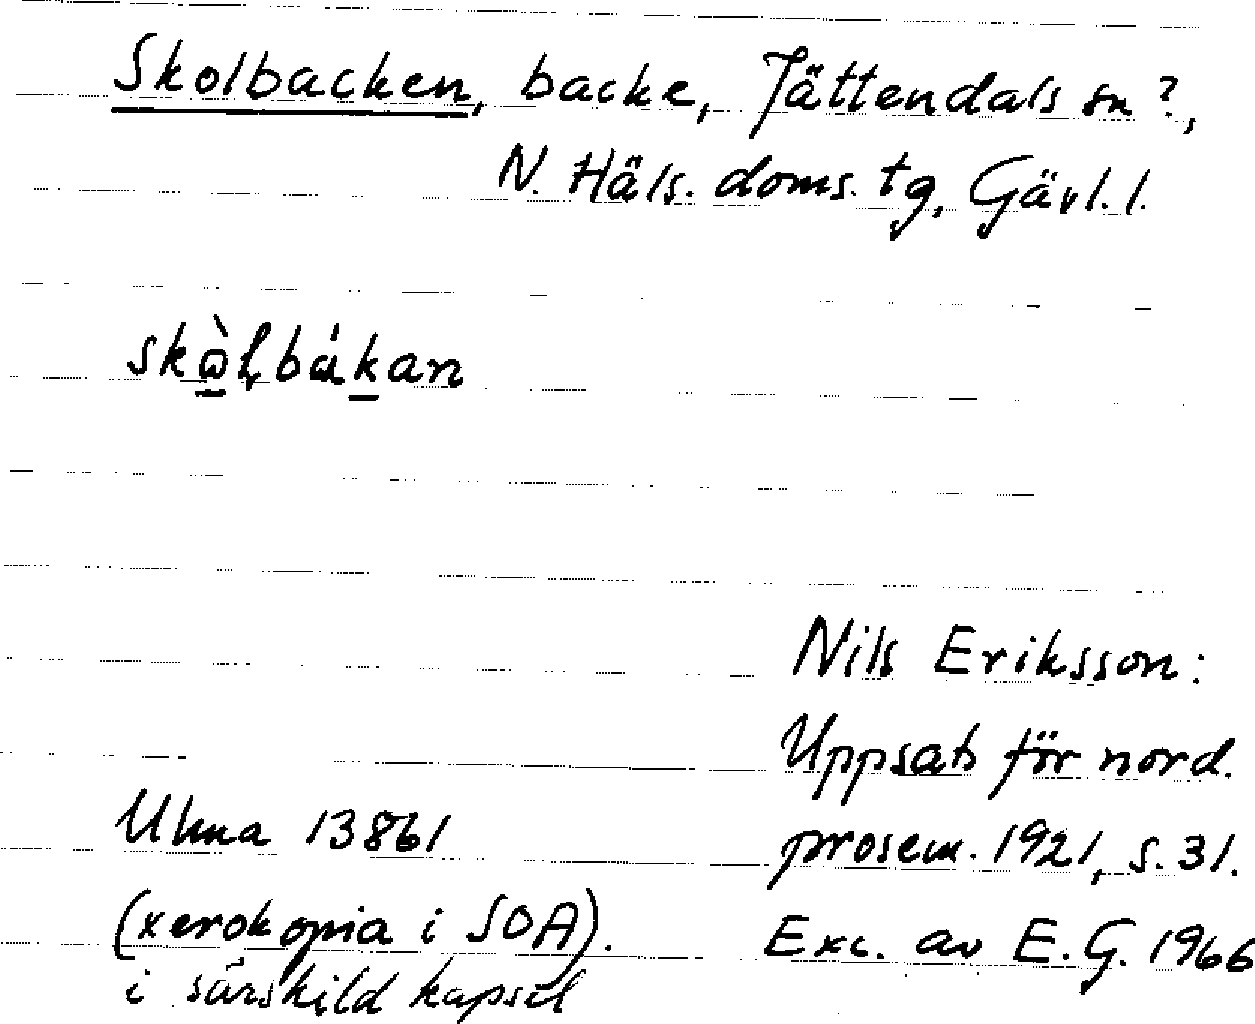 Skolbacken, backe, Jättendals sn?,
N. Häls. doms. tg, Gävl. l.
skò̱l̦báḵan
Nils Eriksson:
Uppsats för nord.
prosem. 1921, s. 31.
Exc. av E. G. 1966
Ulma 13861
(xerokopia i SOA).
i särskild kapsel